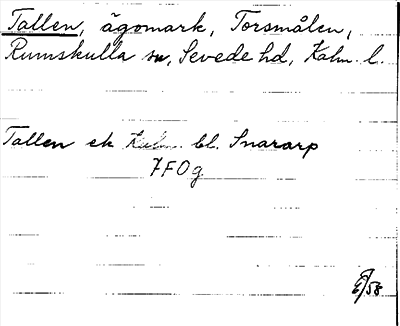 Tallen, ägomark, Torsmålen,
Rumskulla sn, Sevede hd, Kalm. l.
Tallen ek bl. Snararp
7F0g